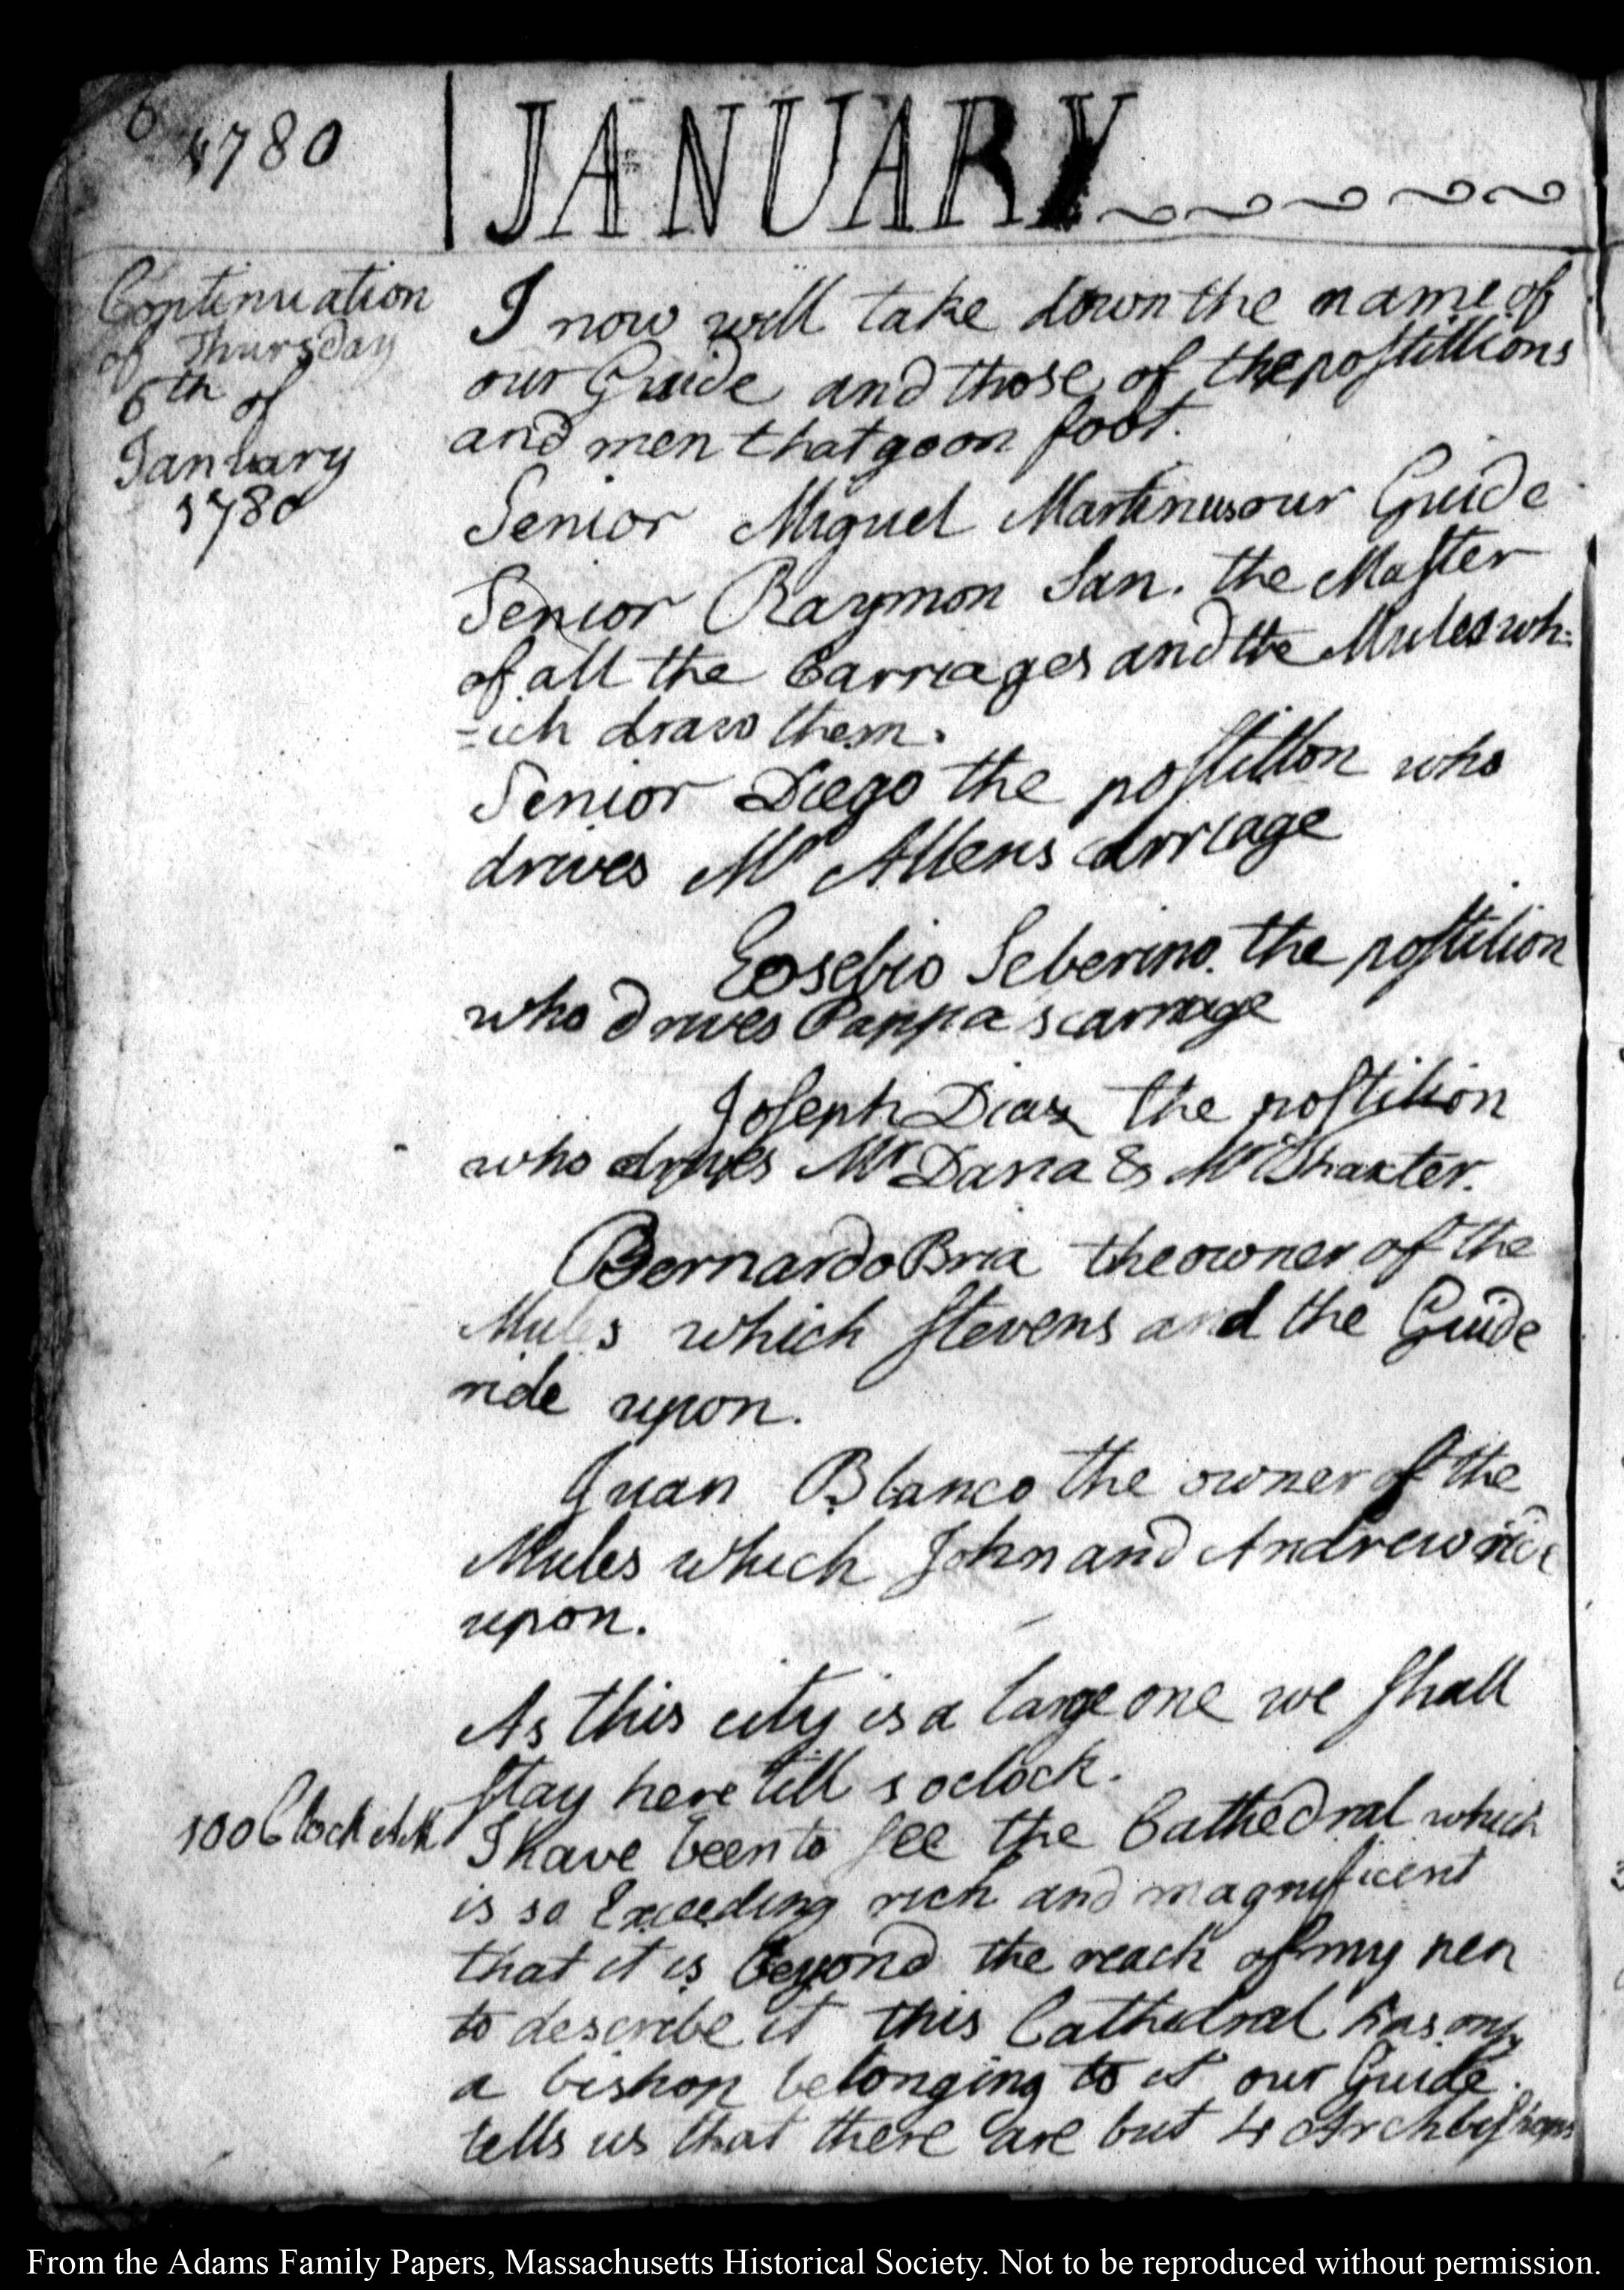 6
1780
JANUARY
Continuation
of Thursday
6th of
January
1780
I now will take down the name of
our Guide and those of the postillions
and men that go on foot.
Senior Miguel Martinus our Guide
Senior Raymon San. the Master
of all the Carriages and the Mules wh=
=ich draw them.
Senior Diego the postillon who
drives Mr Allens carriage
Eosebio Seberino. the postilion
who drives Pappa's carriage
Joseph Diaz the postilion
who drives Mr Dana & Mr Thaxter.
Bernardo Bria the owner of the
Mules which Stevens and the Guide
ride upon.
Juan Blanco the owner of the
Mules which John and Andrew ride
upon.
As this city is a large one we shall
stay here till 1 oclock.
10 o Clock AM
I have been to see the Cathedral which
is so Exceeding rich and magnificent
that it is beyond the reach of my pen
to describe it this Cathedral has only
a bishop belonging to it our Guide
tells us that there are but 4 Archbishops
From the Adams Family Papers, Massachusetts Historical Society. Not to be reproduced without permission.